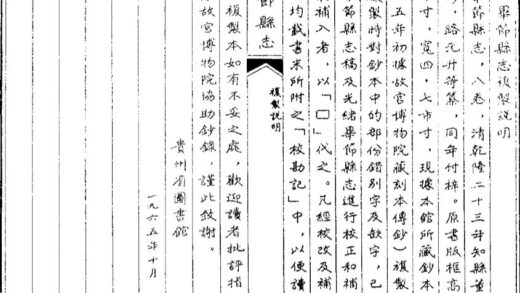 畢節縣志複製說明
節縣志，八卷，清乾隆二十三年知縣董
，路元升等纂，同年付梓。原書版框高
寸，寬四，七市寸，現據本館所藏鈔本
五年初據故宮博物院藏刻本傳鈔）複製
製時對鈔本中的部份錯別字及缺字，已
節縣志稿及光緒畢節縣志進行校正和補
補入者，以「囗」代之。凡經校改及補
均載書末所附之「校勘記」中，以便讀
節縣志
複製說明
複製本如有不妥之處，歡迎讀者批評指
故宮博物院協助鈔錄，謹此致謝。
貴州省圖書館
一九六五年十月